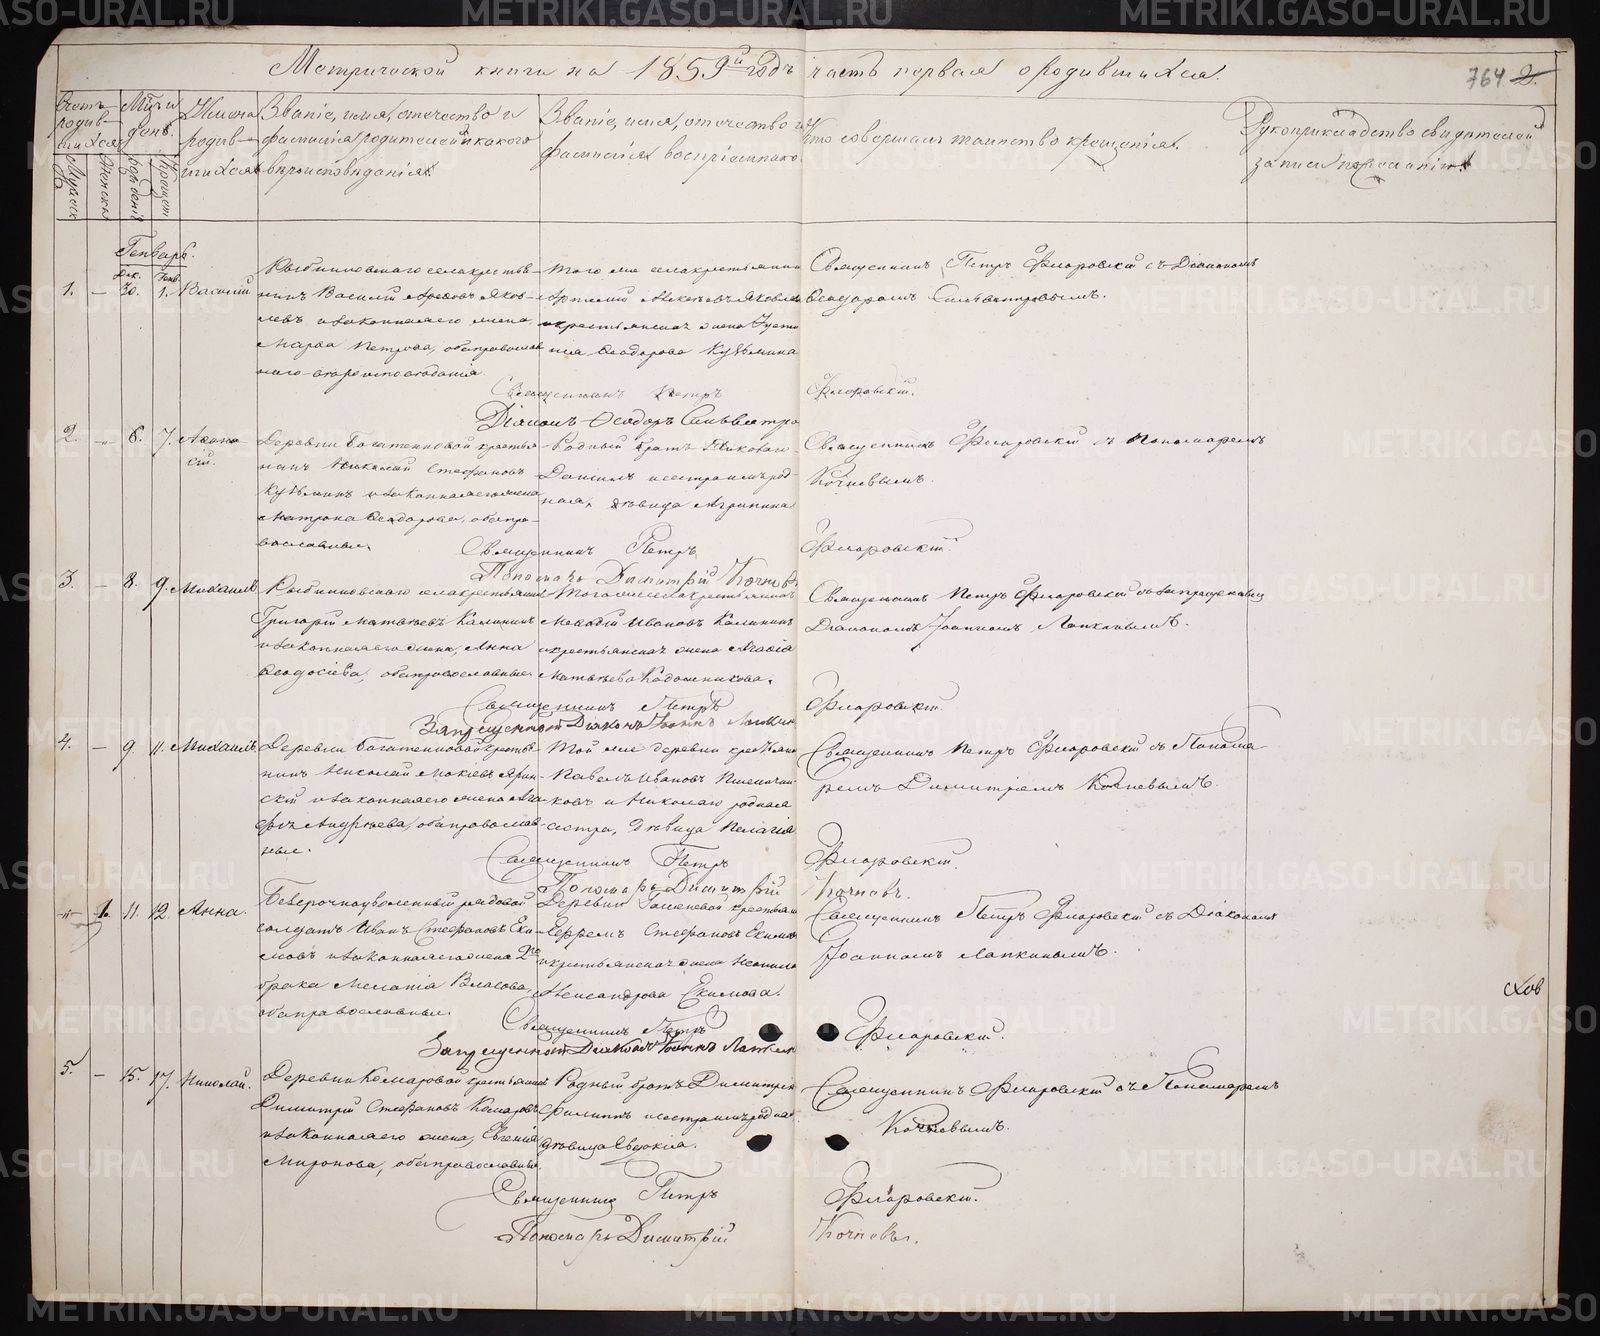 Метрической книги на 1859й годъ часть первая о родившихся.
764 2.
Счетъ родив-шихся
Мужеск
Женск
Мѣсяцъ и день.
рожденія
крещен
Имена родив-шихся
Званіе, имя, отчество и фамилія родителей и какого вѣроисповѣданія.
Званіе, имя, отчество и фамилія воспріемниковъ
Кто совершалъ таинство крещенія.
Рукоприкладство свидѣтелей записи по желанію.
Генварь.
Дек. Генв.
1. – 30. 1. Василій
села крестья-
нинъ Василій Яков-
левъ и законная его жена
Марѳа Петрова, оба православ
наго вѣроисповѣданія
Того же села крестьянинъ
Яковлевъ
и крестьянская жена Усти
нія Ѳеодорова Кузьмина
Священникъ Петръ Флоровскій съ Діакономъ
Ѳеодоромъ Сильвестровымъ.
Священникъ Петръ Флоровскій.
Діаконъ Ѳеодоръ Сильвестро
2. – 6. 7. Аѳана
сій.
Деревни Богатенковой крестья-
нинъ Николай Стефановъ
Кузьминъ и законная его жена
Матрона Ѳеодорова, оба пра-
вославные.
Родный братъ Николаю
Даніилъ и сестра имъ род-
ная, дѣвица Агрипина
Священникъ Флоровскій съ Пономаремъ
Кочневымъ.
Священникъ Петръ Флоровскій.
Пономарь Димитрій Кочневъ
3. – 8. 9. Михаилъ
села крестьянинъ
Григорій Матвѣевъ Калининъ
и законная его жена, Анна
Ѳеодосіева, оба православные.
Того же села крестьянинъ
Меѳодій Ивановъ Калининъ
и крестьянская жена
Матвѣева
Священникъ Петръ Флоровскій съ запрещеннымъ
Діакономъ Іоанномъ Лапкинымъ.
Священникъ Петръ Флоровскій.
Запрещенной Діаконъ Іоаннъ Лапкин
4. – 9. 11. Михаилъ
Деревни Богатенковой крестья-
нинъ Николай Мокіевъ Ярин-
скій и законная его жена Ага-
фья Андреева, оба православ-
ные.
Той же деревни крестьянинъ
Павелъ Ивановъ Пшенични-
ковъ и Николаю родная
сестра, дѣвица Пелагія
Священникъ Петръ Флоровскій съ Понома
ремъ Димитріемъ Кочневымъ.
Священникъ Петръ Флоровскій.
Пономарь Димитрій Кочневъ.
– 1. 11. 12. Анна.
Безсрочноуволенный рядовой
солдатъ Иванъ Стефановъ Еки-
мовъ и законная его жена 2го
брака Мелатія Власова,
оба православные.
Деревни крестьян
Ефремъ Стефановъ Екимовъ
и крестьянская жена
Александрова Екимова.
Священникъ Петръ Флоровскій съ Діакономъ
Іоанномъ Лапкинымъ.
Священникъ Петръ Флоровскій.
Запрещенной Діаконъ Іоаннъ Лапкин
схов
5. – 15. 17. Николай.
Деревни Комаровой крестьянинъ
Димитрій Стефановъ Комаровъ
и законная его жена, Евгенія
Миронова, оба православные.
Родный братъ Димитрію
Филиппъ и сестра имъ родная
дѣвица Евдокія.
Священникъ Флоровскій съ Пономаремъ
Кочневымъ.
Священникъ Петръ Флоровскій.
Пономарь Димитрій Кочневъ.
METRIKI.GASO-URAL.RU